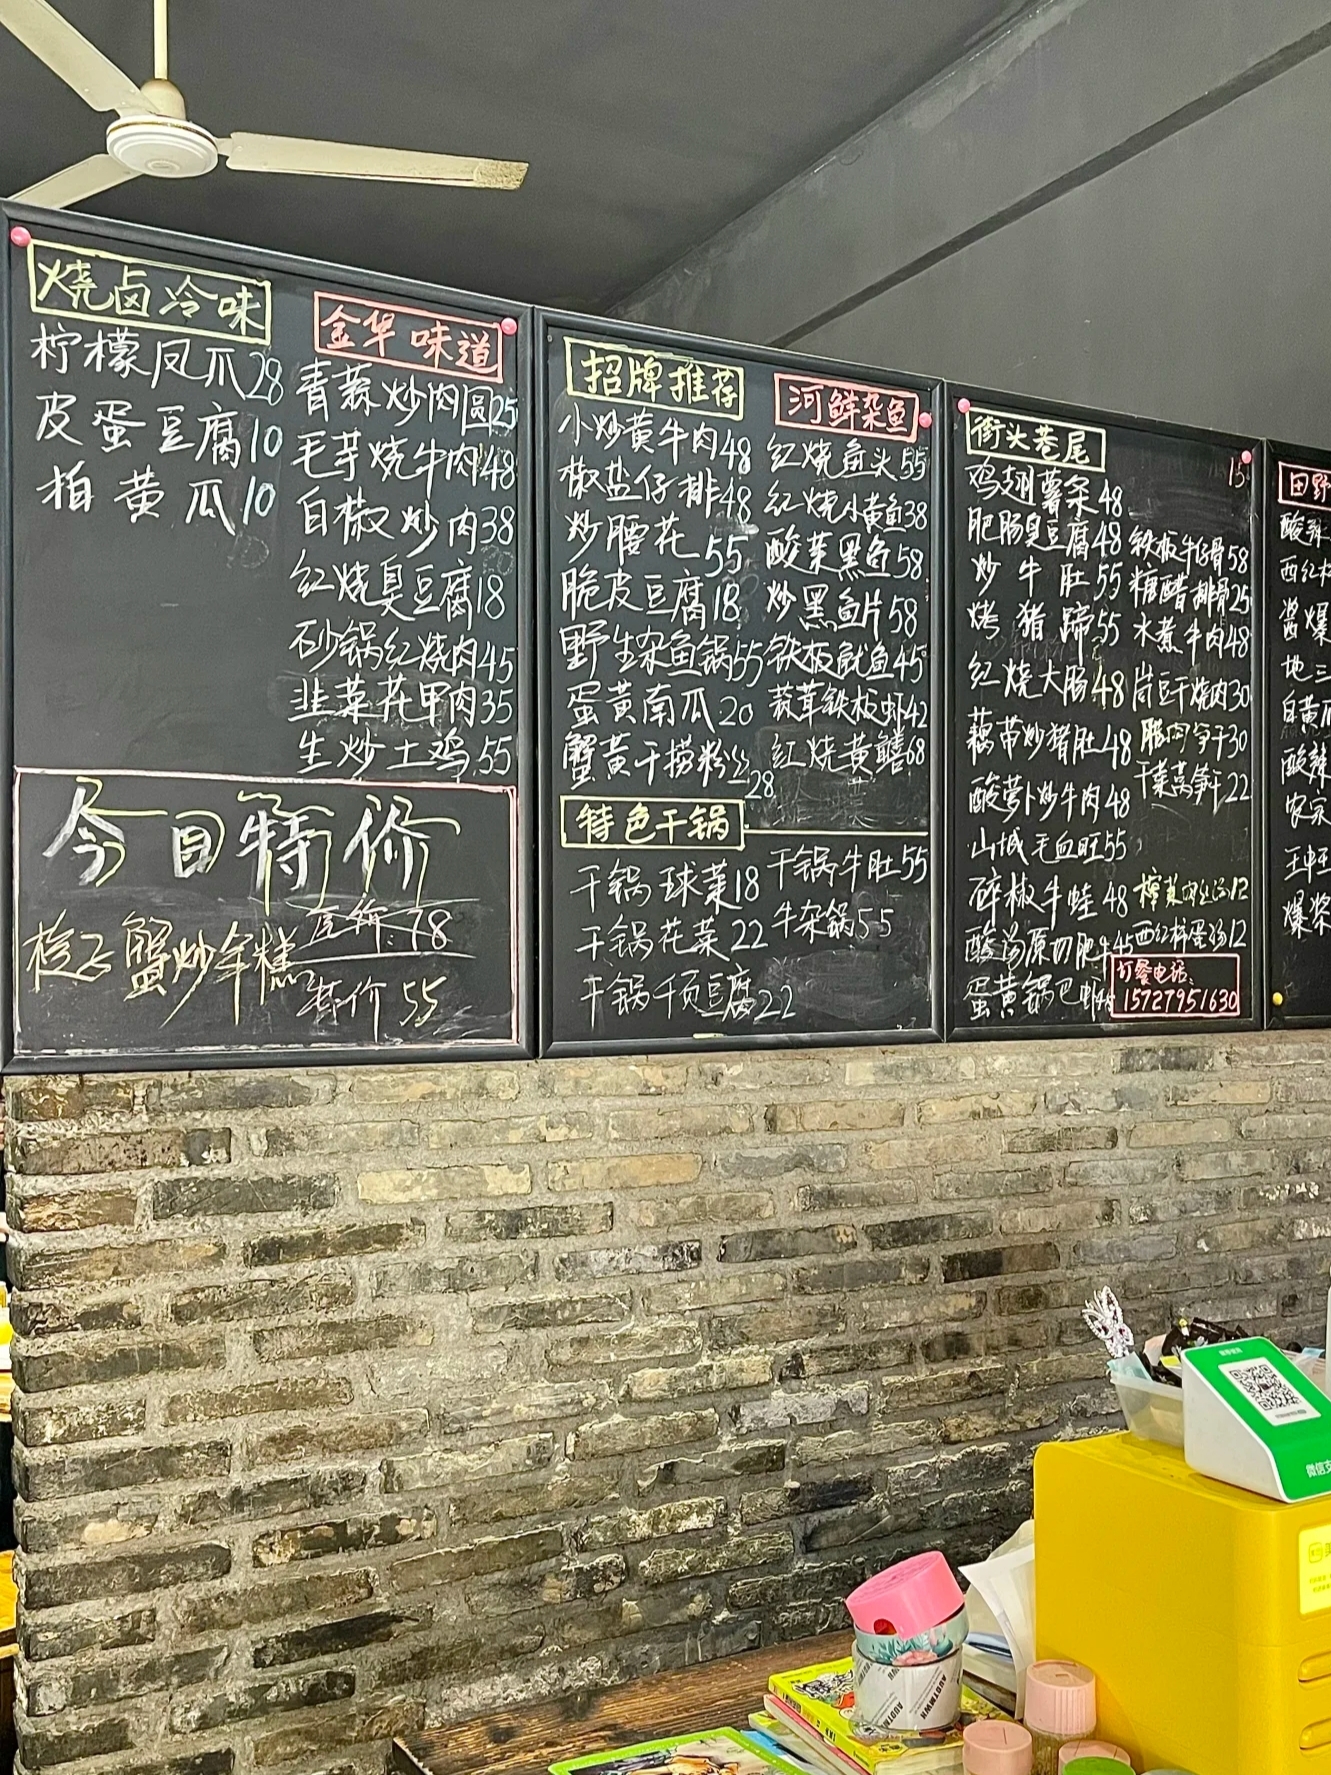 烧卤冷味
柠檬凤爪28
皮蛋豆腐10
拍黄瓜10
金华味道
青蒜炒肉圆25
毛芋烧牛肉48
白椒炒肉38
红烧臭豆腐18
砂锅红烧肉45
韭菜花甲肉35
生炒土鸡55
今日特价
梭子蟹炒年糕
原价:78
特价55
招牌推荐
小炒黄牛肉48
椒盐仔排48
炒腰花55
脆皮豆腐18
野生杂鱼锅55
蛋黄南瓜20
蟹黄干捞粉丝28
河鲜杂鱼
红烧鱼头55
红烧小黄鱼38
酸菜黑鱼58
炒黑鱼片58
铁板鱿鱼45
蒜茸铁板虾42
红烧黄鳝68
特色干锅
干锅球菜18
干锅花菜22
干锅千页豆腐22
干锅牛肚55
牛杂锅55
街头巷尾
鸡翅薯条48
肥肠臭豆腐48
炒牛肚55
烤猪蹄55
红烧大肠48
藕带炒猪肚48
酸萝卜炒牛肉48
山城毛血旺55
碎椒牛蛙48
酸汤原切肥牛45
蛋黄锅巴虾45
15
铁板牛仔骨58
糖醋排骨25
水煮牛肉48
豆干烧肉30
腊肉笋干30
干菜莴笋干22
榨菜肉丝汤12
西红柿蛋汤12
订餐电话:
15727951630
田野
酸辣
西红柿
酱爆
地三
白黄瓜
酸辣
农家
爆浆
微信支